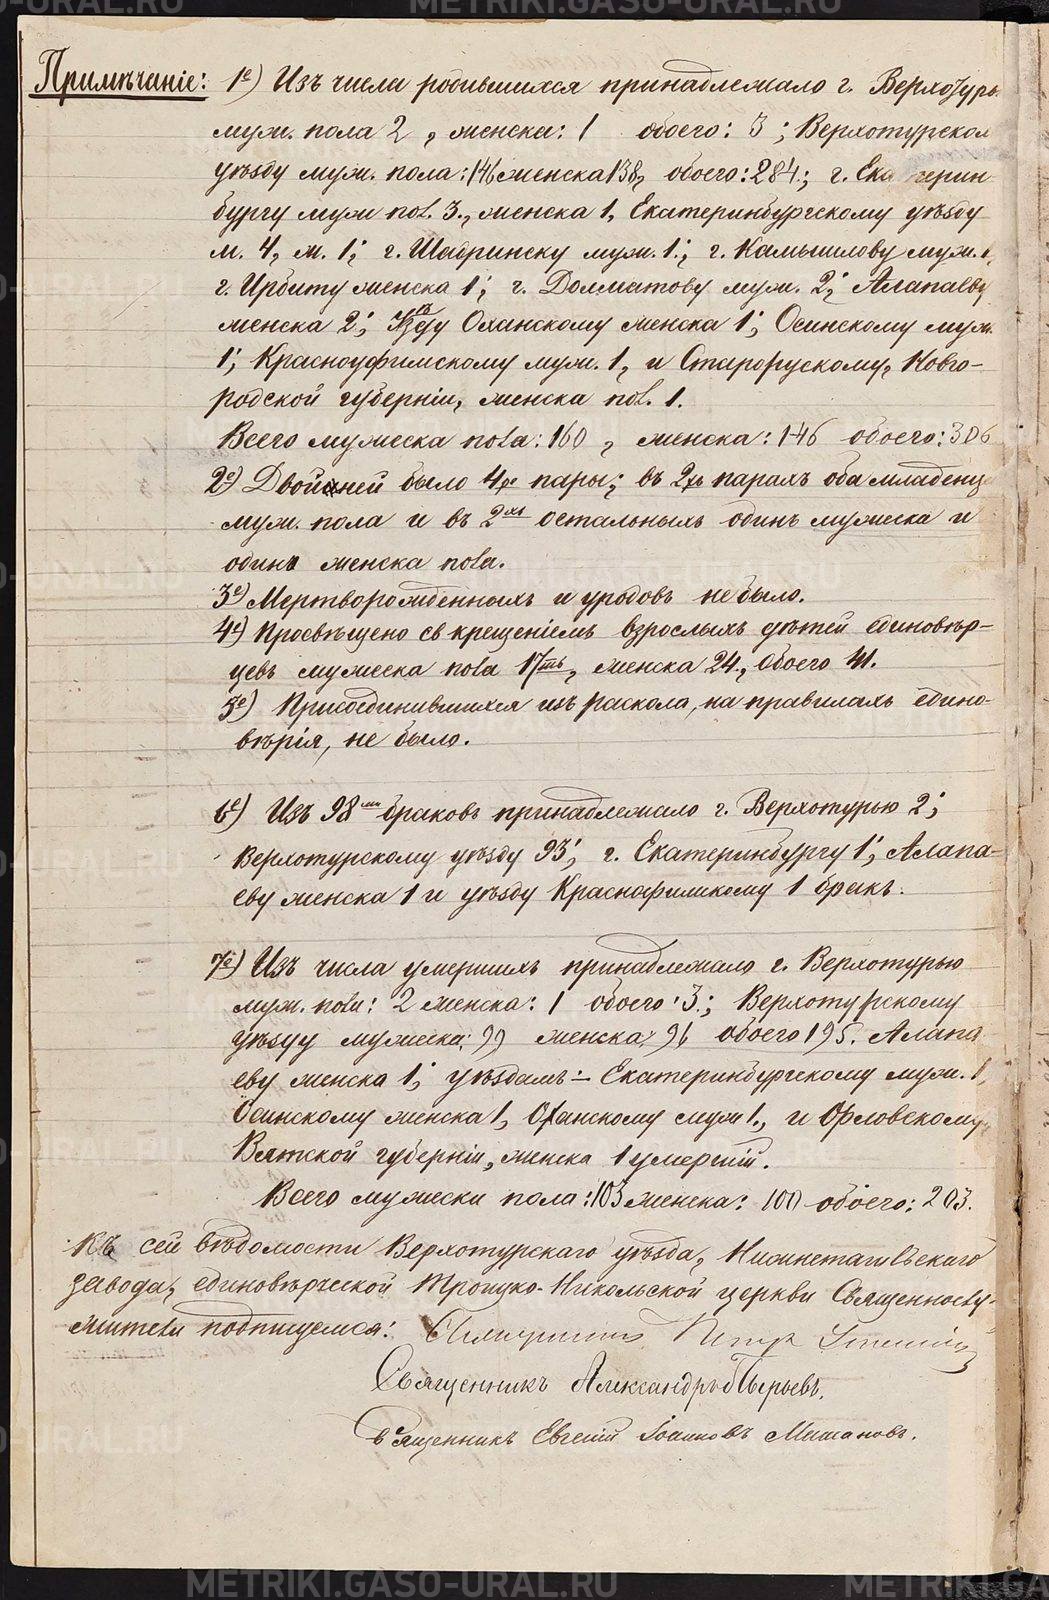 METRIKI.GASO-URAL.RU
Примѣчаніе: 1е) Изъ числа родившихся принадлежало г. Верхотурь
муж. пола 2, женска: 1 обоего: 3; Верхотурском
уѣзду муж. пола: 146 женска 138, обоего: 284; г. Екатерин-
бургу муж пол. 3., женска 1, Екатеринбургскому уѣзду
м. 4, ж. 1; г. Шадринску муж. 1.; г. Камышлову муж. 1,
г. Ирбиту женска 1; г. Долматову муж. 2; Алапаеву
женска 2; Уѣзду Оханскому женска 1; Осинскому муж.
1; Красноуфимскому муж. 1, и Старорускому, Новго-
родской губерніи, женска пол. 1.
Всего мужеска пола: 160, женска: 146 обоего: 306
2е) Двойней было 4ре пары; въ 2хъ парахъ оба младенц
муж. пола и въ 2хъ остальныхъ одинъ мужеска и
одинъ женска пола.
3е) Мертворожденныхъ и уродовъ не было.
4е) Просвѣщено св крещеніемъ взрослыхъ дѣтей единовѣр-
цевъ мужеска пола 17ть, женска 24, обоего 41.
5е) Присоединившихся изъ раскола, на правилахъ едино-
вѣрія, не было.
6е) Изъ 98ми браковъ принадлежало г. Верхотурью 2;
Верхотурскому уѣзду 93; г. Екатеринбургу 1; Алапа-
еву женска 1 и уѣзду Краснофимскому 1 бракъ.
7е) Изъ числа умершихъ принадлежало г. Верхотурью
муж. пола: 2 женска: 1 обоего: 3.; Верхотурскому
уѣзду мужеска: 99 женска: 96 обоего 195. Алапа
еву женска 1; уѣздамъ:– Екатеринбургскому муж. 1,
Осинскому женска 1, Оханскому муж 1., и Орловскому,
Вятской губерніи, женска 1 умершій.
Всего мужески пола: 103 женска: 100 обоего: 203.
Къ сей вѣдомости Верхотурскаго уѣзда, Нижнетагильскаго
завода, единовѣрческой Троицко-Никольской церкви Священнослу-
жители подпишемся: Петр
Священникъ Александръ Пырьевъ.
Священникъ Евгеній Іоанновъ
METRIKI.GASO-URAL.RU